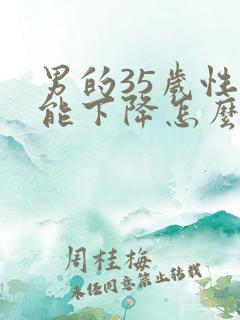 男的35歲性
能下降怎麼
周桂梅
未经同意禁止转载